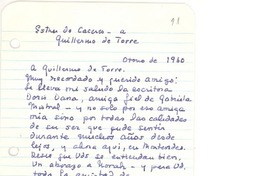 91
Esther de Cáceres - a
Guillermo de Torre
Otoño de 1960
A Guillermo de Torre.
Muy recordado y querido amigo:
Le lleva mi saludo la escritora
Doris Dana, amiga fiel de Gabriela
Mistral - y no solo por ser amiga
mía sino por todas las calidades
de su ser que pude sentir
durante muchos años desde
lejos, y ahora aquí, en Montevideo.
Deseo que Uds se entiendan bien.
Un abrazo a Norah - y para Ud.
toda la amistad de